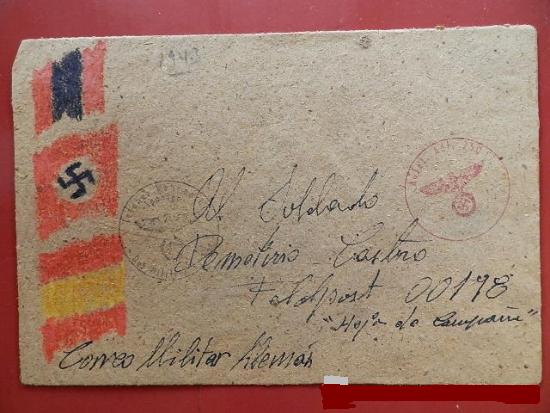 1943
Al Soldado
Demetirio Castro
Feldpost 00178
"Hoja de Campaña"
Correo Militar Alemán